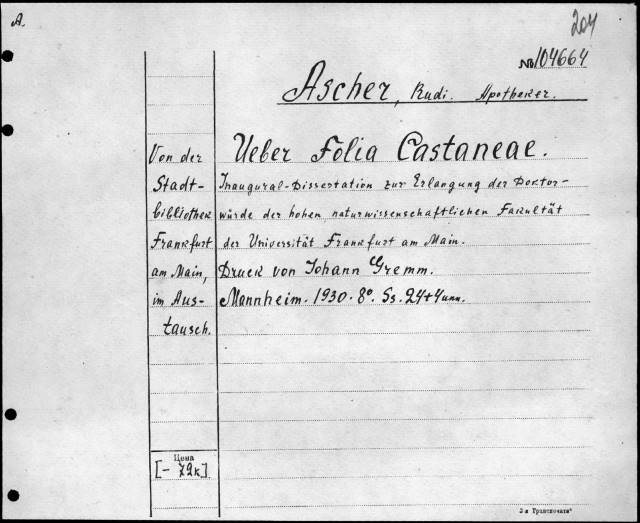 A.
204
№104664
Ascher, Rudi. Apotheker.
Von der
Stadt-
bibliothek
Frankfurt
am Main,
im Aus-
tausch.
Ueber Folia Castaneae.
Inaugural-Dissertation zur Erlangung der Doktor-
würde der hohen naturwissenschaftlichen Fakultät
der Universität Frankfurt am Main.
Druck von Johann Gremm.
Mannheim. 1930. 8°. Ss. 24+4unn.
Цена
[- 72к]
2-я Транспечать"